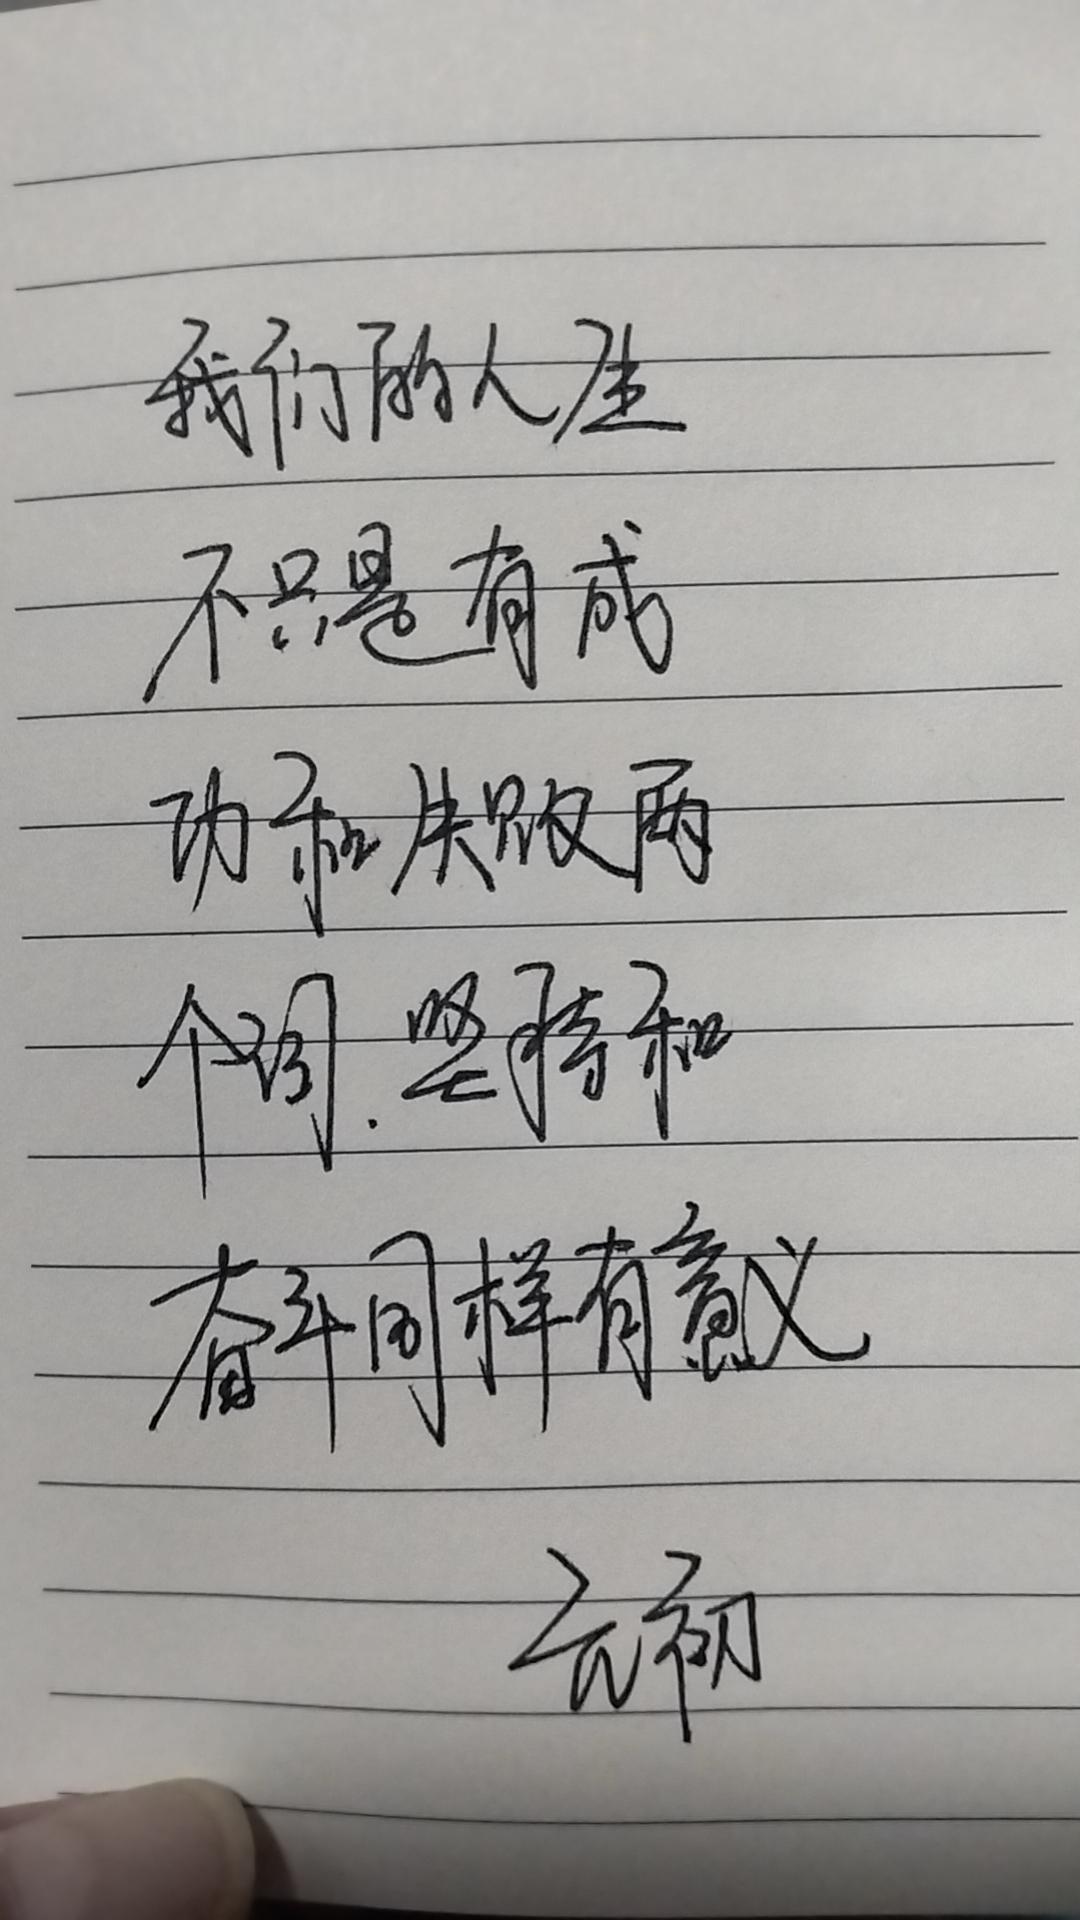 我们的人生
不只是有成
功和失败两
个词.坚持和
奋斗同样有意义